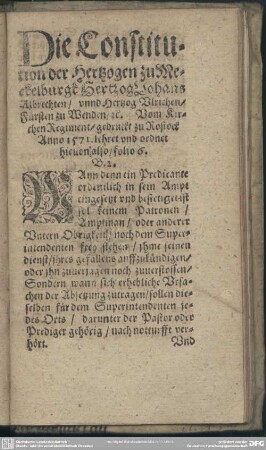 Die Constitu-
tion der Hertzogen zu Me-
ckelburgk Hertzog Johans
Albrechten / vnnd Hertzog Vlrichen /
Fürsten zu Wenden / ꝛc. Vom Kir-
chen Regiment / gedruckt zu Rostock
Anno 1571. lehret vnd ordnet
hieuon also / folio 6.
B. 2.
WAnn denn ein Predicante
ordentlich in sein Ampt
eingesetzt vnd bestetiget ist
sol keinem Patronen /
Amptman / oder anderer
Vntern Obrigkeit / noch dem Supe-
rintendenten frey stehen / ihme seinen
dienst / ihres gefallens auffzukündigen /
oder ihn zuuerjagen noch zuuerstossen /
Sondern wann sich erhebliche Vrsa-
chen der Absetzung zutragen / sollen die-
selben für dem Superintendenten je-
des Orts / darunter der Pastor oder
Prediger gehörig / nach notturfft ver-
hört.
Vnd